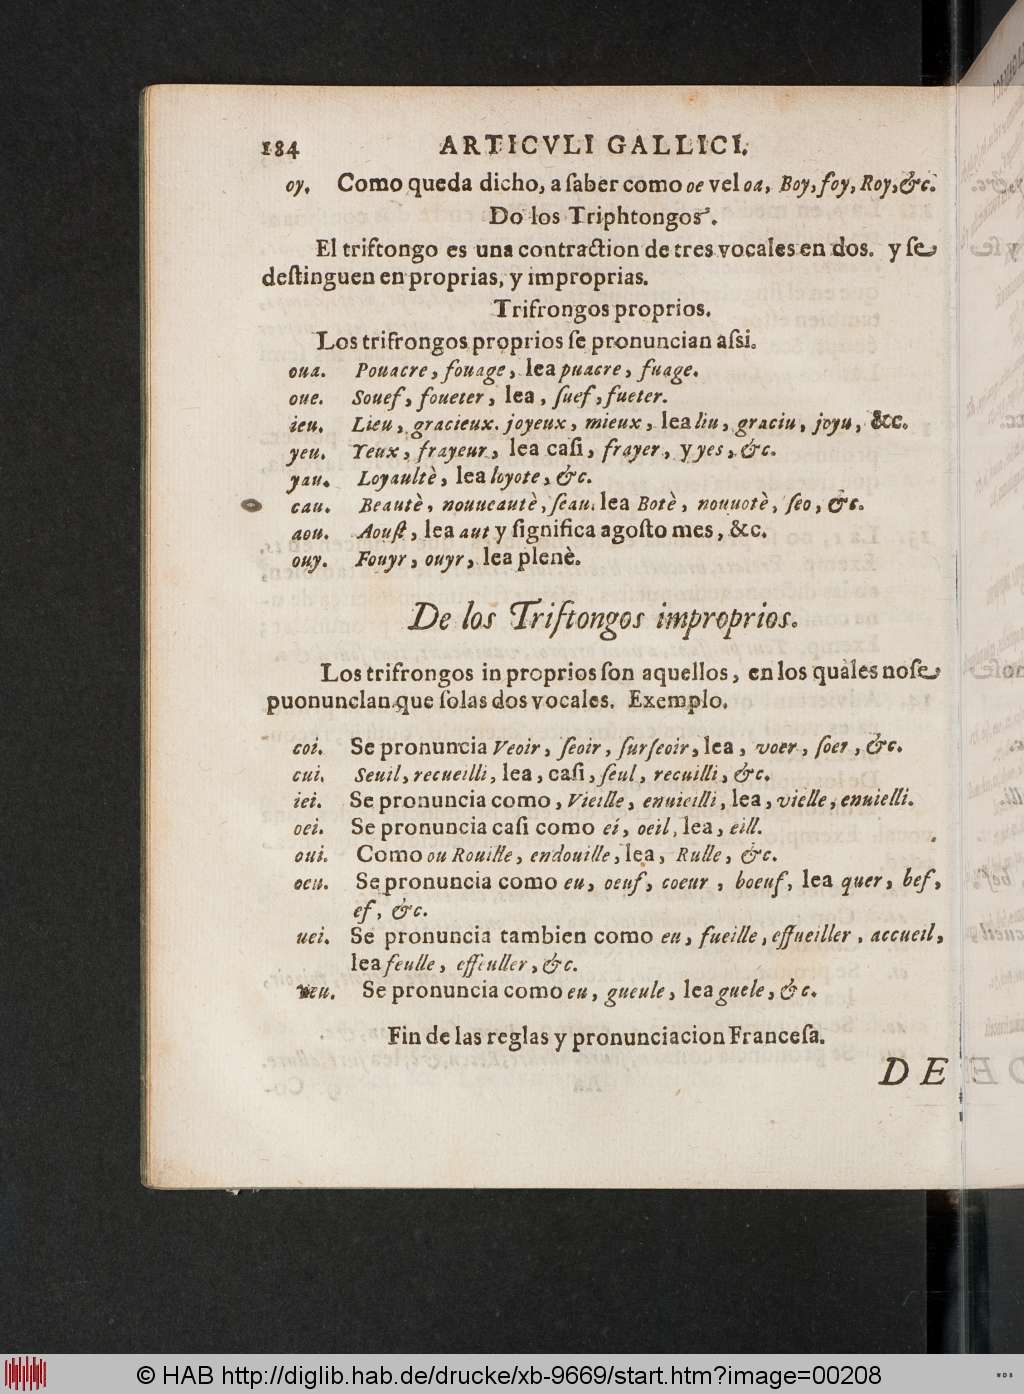 184 ARTICVLI GALLICI.
oy. Como queda dicho, a ſaber como oe vel oa, Boy, foy, Roy, &c.
Do los Triphtongos.
El triftongo es una contraction de tres vocales en dos. y ſe
deſtinguen en proprias, y improprias.
Trifrongos proprios.
Los trifrongos proprios ſe pronuncian aſsi.
oua. Pouacre, fouage, lea puacre, fuage.
oue. Souef, foueter, lea, ſuef, fueter.
ieu. Lieu, gracieux. joyeux, mieux, lea liu, graciu, joyu, &c.
yeu. Yeux, frayeur, lea caſi, frayer, y yes, &c.
yau. Loyaultè, lea loyote, &c.
cau. Beautè, nouueautè, ſeau. lea Botè, nouuotè, ſeo, &c.
aou. Aouſt, lea aut y ſignifica agoſto mes, &c.
ouy. Fouyr, ouyr, lea plenè.
De los Triftongos improprios.
Los trifrongos in proprios ſon aquellos, en los quàles no ſe
puonunclan que ſolas dos vocales. Exemplo.
coi. Se pronuncia Veoir, ſeoir, ſurſeoir, lea, voer, ſoer, &c.
cui. Seuil, recueilli, lea, caſi, ſeul, recuilli, &c.
iei. Se pronuncia como, Vieille, enuieilli, lea, vielle, enuielli.
oei. Se pronuncia caſi como ei, oeil, lea, eill.
oui. Como ou Rouille, endouille, lea, Rulle, &c.
oeu. Se pronuncia como eu, oeuf, coeur, boeuf, lea quer, bef,
ef, &c.
uei. Se pronuncia tambien como eu, fueille, effueiller, accueil,
lea feulle, effeuller, &c.
ueu. Se pronuncia como eu, gueule, lea guele, &c.
Fin de las reglas y pronunciacion Franceſa.
DE
© HAB http://diglib.hab.de/drucke/xb-9669/start.htm?image=00208